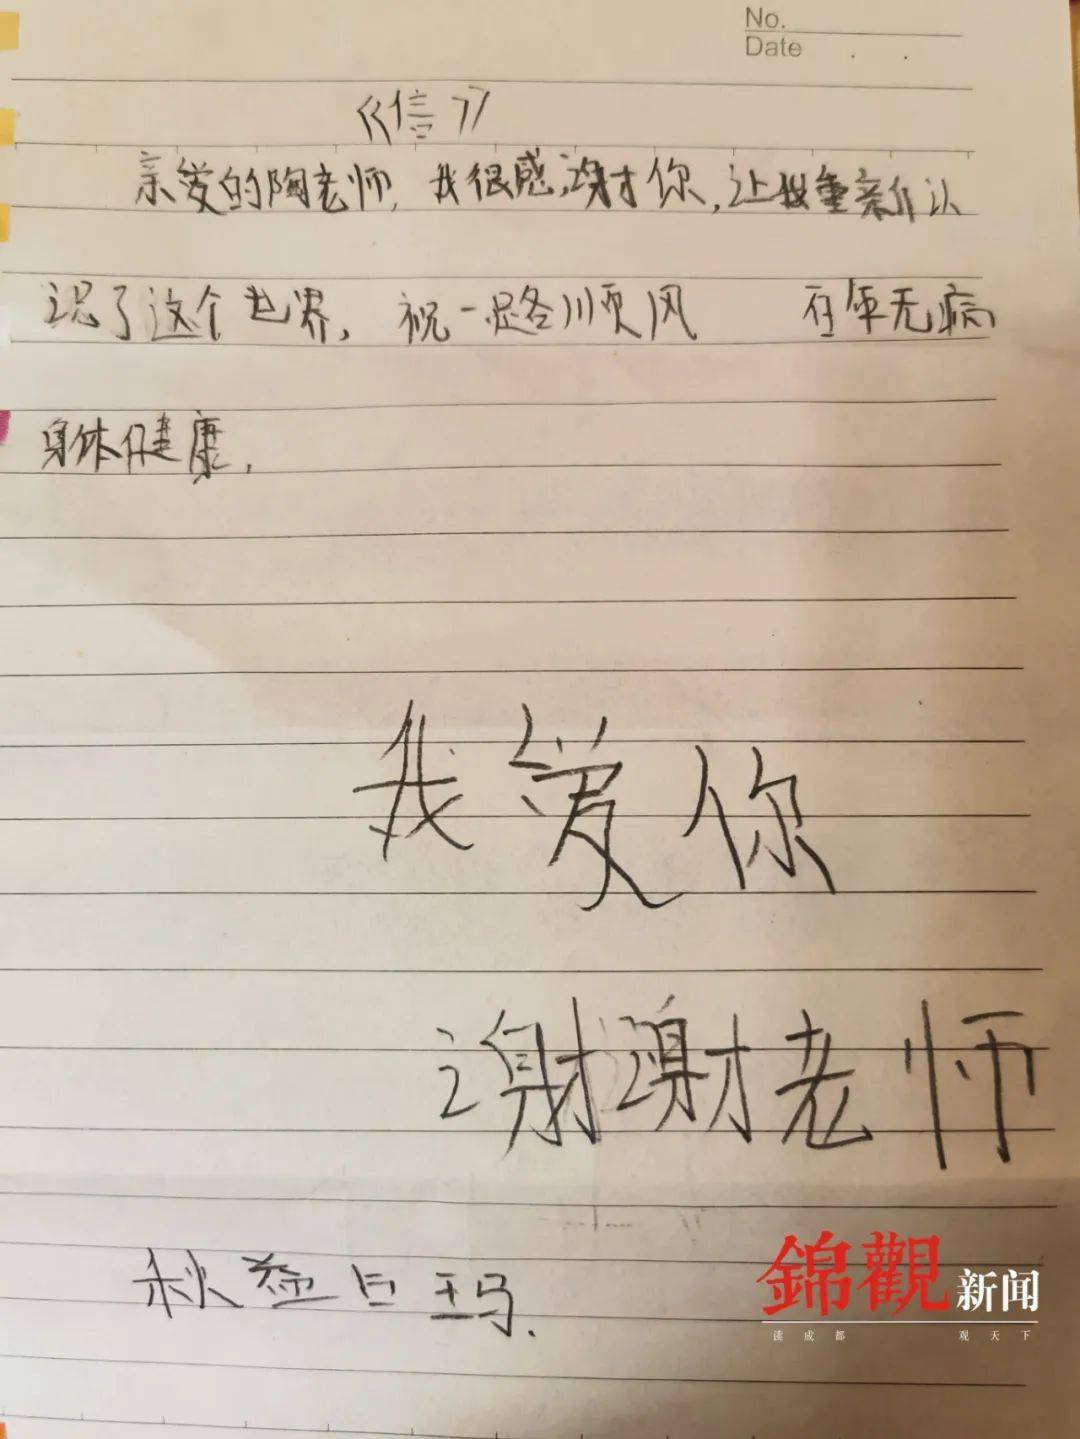 No.
Date
《信》
亲爱的陶老师,我很感谢你,让我重新认
识了这个世界,祝一路顺风 百年无病
身体健康.
我爱你
谢谢老师
秋益白玛.
錦觀新闻
读成都 观天下